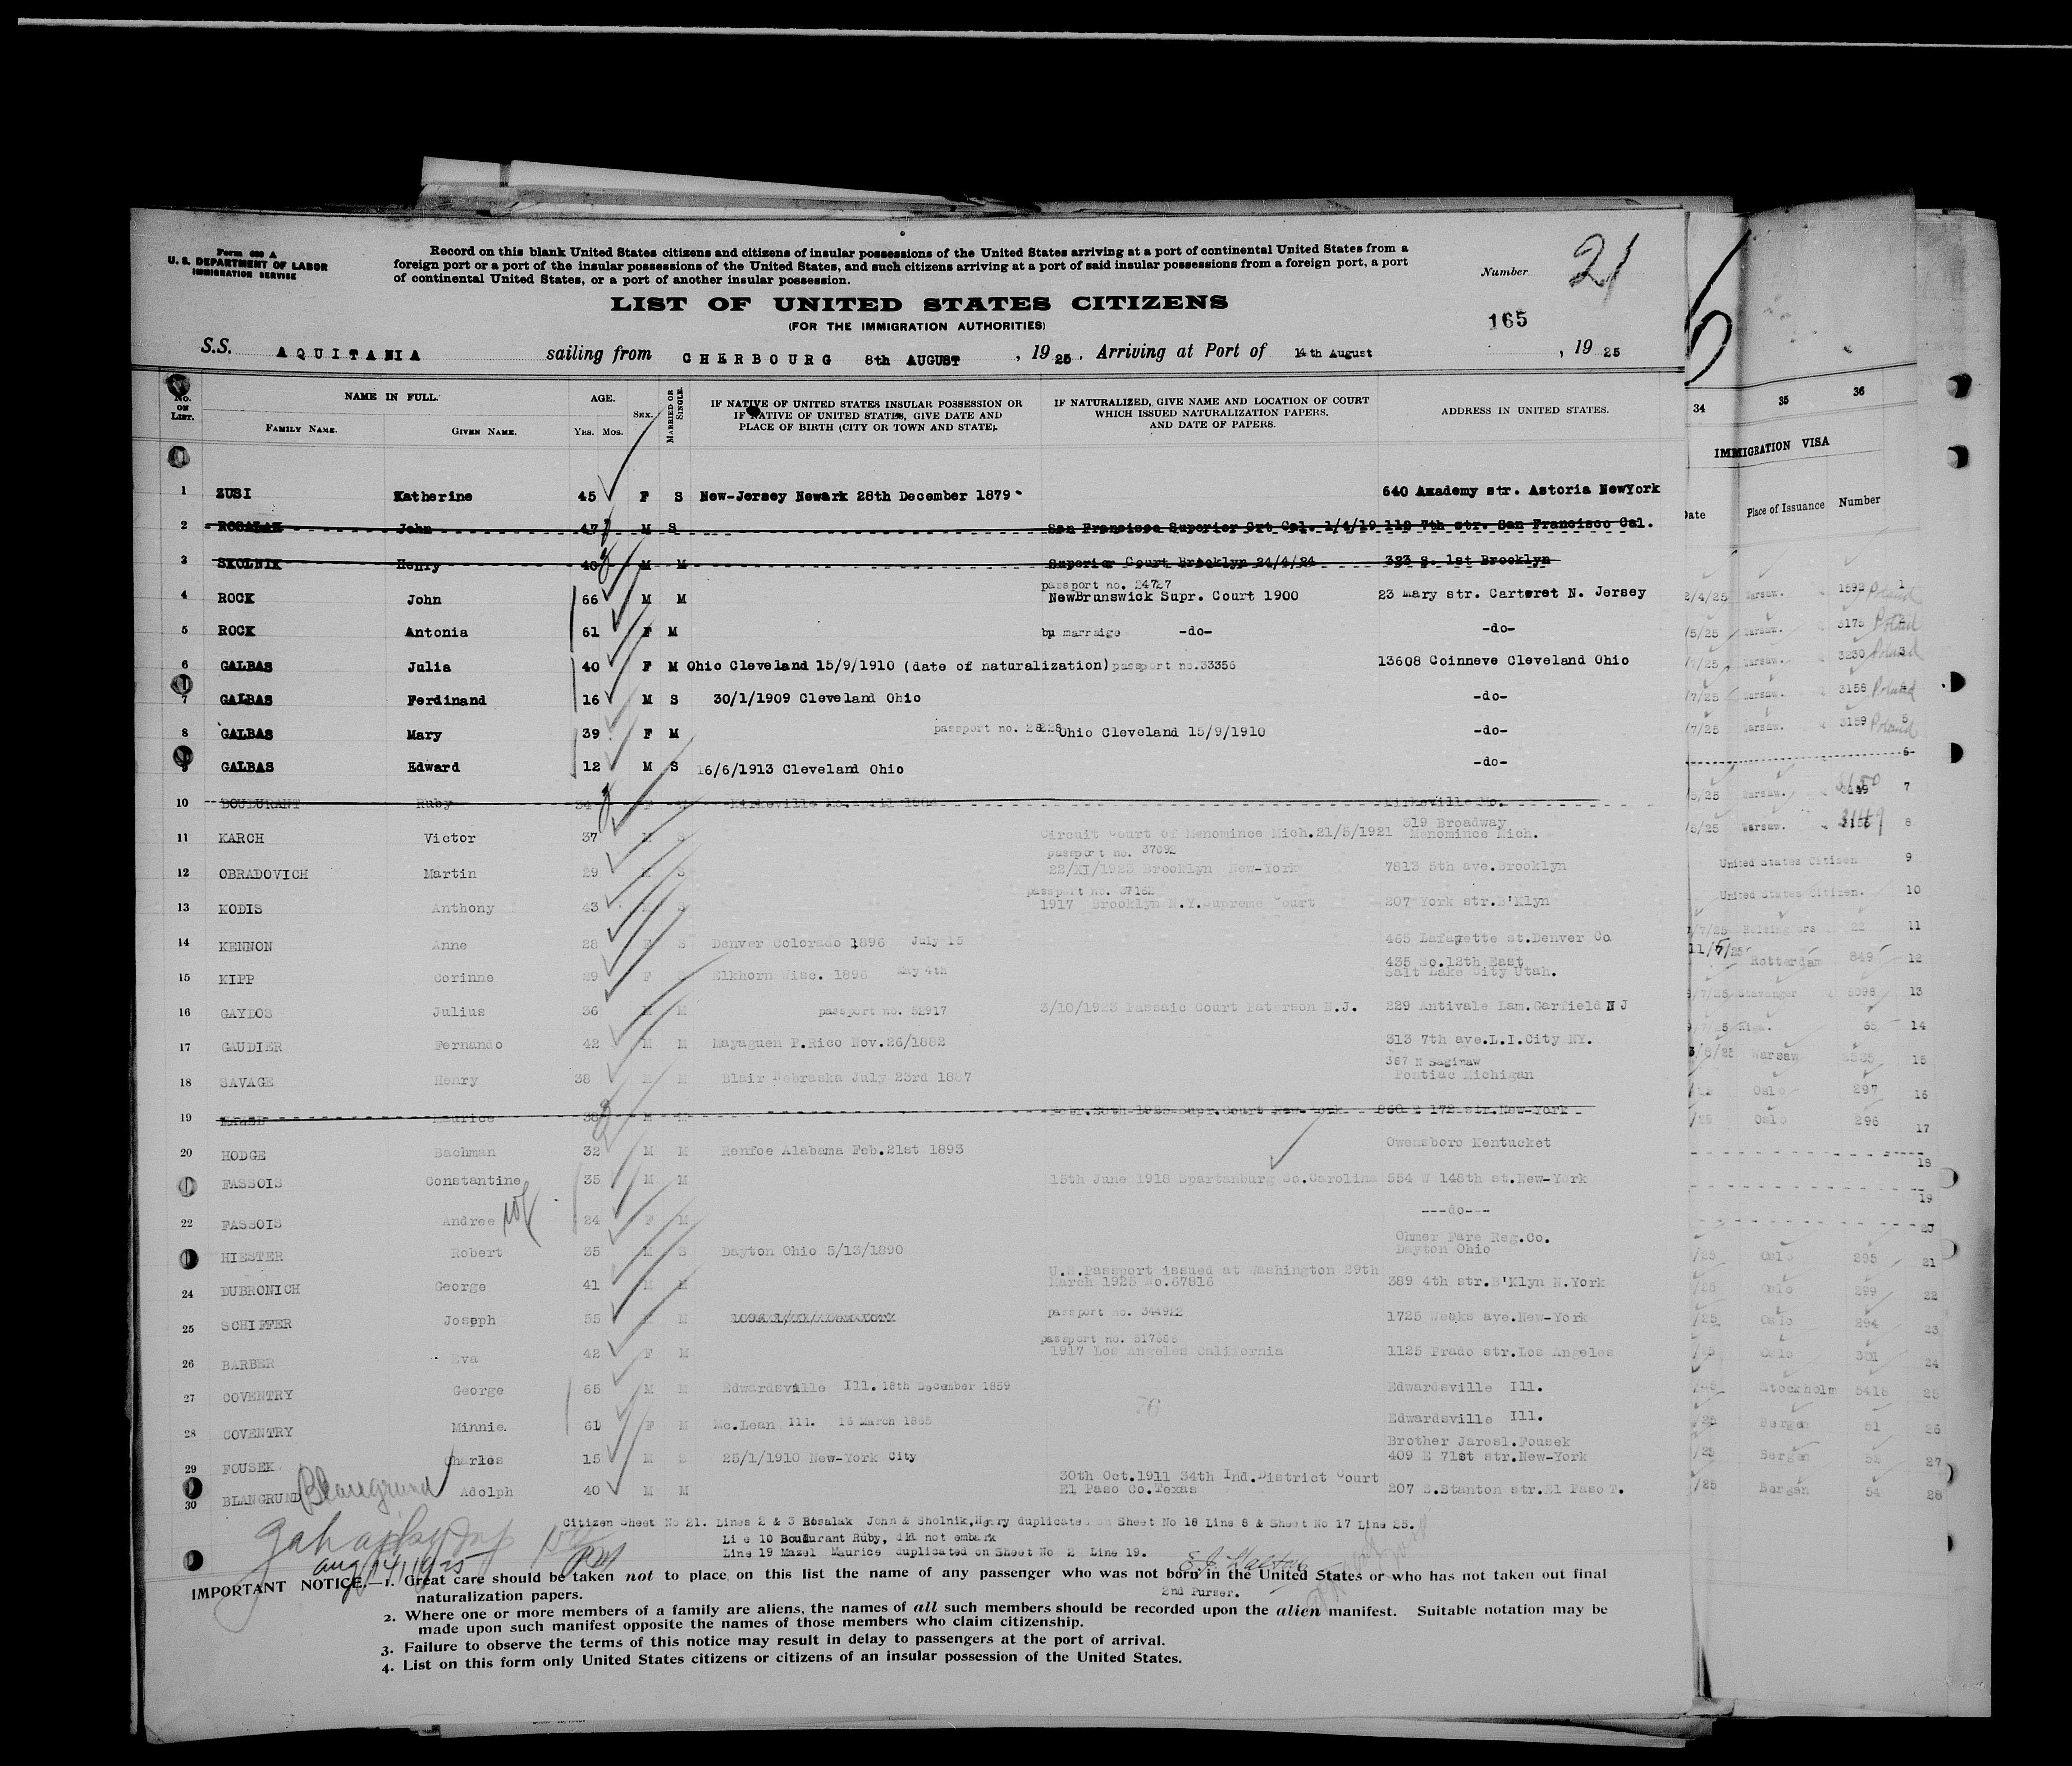 Form 630 A
U. S. DEPARTMENT OF LABOR
IMMIGRATION SERVICE
Record on this blank United States citizens and citizens of insular possessions of the United States arriving at a port of continental United States from a
foreign port or a port of the insular possessions of the United States, and such citizens arriving at a port of said insular possessions from a foreign port, a port
of continental United States, or a port of another insular possession.
Number 21
LIST OF UNITED STATES CITIZENS
(FOR THE IMMIGRATION AUTHORITIES)
165
S.S. AQUITANIA sailing from CHERBOURG 8th AUGUST , 19 25 , Arriving at Port of 14th August , 19 25
No. ON LIST. NAME IN FULL. AGE. SEX. MARRIED OR SINGLE. IF NATIVE OF UNITED STATES INSULAR POSSESSION OR IF NATIVE OF UNITED STATES, GIVE DATE AND PLACE OF BIRTH (CITY OR TOWN AND STATE). IF NATURALIZED, GIVE NAME AND LOCATION OF COURT WHICH ISSUED NATURALIZATION PAPERS, AND DATE OF PAPERS. ADDRESS IN UNITED STATES.
FAMILY NAME. GIVEN NAME. YRS. MOS.
1 ZUSI Katherine 45 F S New-Jersey Newark 28th December 1879 640 Axademy str. Astoria NewYork
2 ROSALAK John 47 M S San Francisco Superior Crt Cal. 1/4/19 112 7th str. San Francisco Cal.
3 SKOLNIK Henry 40 M M Superior Court Brooklyn 24/4/24 323 S. 1st Brooklyn
4 ROCK John 66 M M passport no. 24727 NewBrunswick Supr. Court 1900 23 Mary str. Carteret N. Jersey
5 ROCK Antonia 61 F M by marraige -do- -do-
6 GALBAS Julia 40 F M Ohio Cleveland 15/9/1910 (date of naturalization) passport no.33356 13608 Coinneve Cleveland Ohio
7 GALBAS Ferdinand 16 M S 30/1/1909 Cleveland Ohio -do-
8 GALBAS Mary 39 F M passport no. Ohio Cleveland 15/9/1910 -do-
9 GALBAS Edward 12 M S 16/6/1913 Cleveland Ohio -do-
10 BOUDURANT Ruby 34 F Kirksville Mo. April Kirksville Mo.
11 KARCH Victor 37 M S Circuit Court of Menomince Mich.21/5/1921 319 Broadway Menomince Mich.
12 OBRADOVICH Martin 29 M S passport no. 37092 22/XI/1923 Brooklyn New-York 7813 5th ave.Brooklyn
13 KODIS Anthony 43 M S passport no. 67162 1917 Brooklyn N.Y.Supreme Court 207 York str.B'Klyn
14 KENNON Anne 28 F S Denver Colorado 1896 July 15 465 Lafayette st.Denver Co
15 KIPP Corinne 29 F S Elkhorn Wisc. 1896 May 4th 435 So.12th East Salt Lake City Utah.
16 GAYDOS Julius 36 M M passport no. 52917 3/10/1923 Passaic Court Paterson N.J. 229 Antivale Lam.Garfield N J
17 GAUDIER Fernando 42 M M Mayaguen P.Rico Nov.26/1882 313 7th ave.L.I.City NY.
18 SAVAGE Henry 38 M M Blair Nebraska July 23rd 1887 367 N Saginaw Pontiac Michigan
19 Maurice 38 M M Supr.Court New-York 860 E 172 str.New-York
20 HODGE Bachman 32 M M Renfoe Alabama Feb.21st 1893 Owensboro Kentucket
FASSOIS Constantine 35 M M 15th June 1918 Spartanburg So.Carolina 554 W 148th st.New-York
22 FASSOIS Andree 24 F M ---do---
HIESTER Robert 35 M S Dayton Ohio 5/13/1890 Ohmer Fare Reg.Co. Dayton Ohio
24 DUBRONICH George 41 M M U.S.Passport issued at Washington 29th March 1925 No.67816 389 4th str.B'Klyn N.York
25 SCHIFFER Joseph 55 M passport no. 344922 1725 Weeks ave.New-York
26 BARBER Eva 42 F M passport no. 517655 1917 Los Angeles California 1125 Prado str.Los Angeles
27 COVENTRY George 65 M M Edwardsville Ill. 18th December 1859 Edwardsville Ill.
28 COVENTRY Minnie. 61 F M Mc.Lean Ill. 16 March 1865 Edwardsville Ill.
29 FOUSEK Charles 15 M S 25/1/1910 New-York City Brother Jarosl.Fousek 409 E 71st str.New-York
30 BLANGRUND Blaugrund Adolph 40 M M 30th Oct.1911 34th Ind.District Court El Paso Co.Texas 207 S.Stanton str.El Paso T.
Citizen Sheet No 21. Lines 2 & 3 Rosalak John & Sholnik,Henry duplicated on Sheet No 18 Line 8 & Sheet No 17 Line 25.
Li e 10 Boudurant Ruby, did not embark
Line 19 Mazel Maurice duplicated on Sheet No 2 Line 19.
aug 14 1925
2nd Purser.
IMPORTANT NOTICE.—1. Great care should be taken not to place on this list the name of any passenger who was not born in the United States or who has not taken out final
naturalization papers.
2. Where one or more members of a family are aliens, the names of all such members should be recorded upon the alien manifest. Suitable notation may be
made upon such manifest opposite the names of those members who claim citizenship.
3. Failure to observe the terms of this notice may result in delay to passengers at the port of arrival.
4. List on this form only United States citizens or citizens of an insular possession of the United States.
34 35 36
IMMIGRATION VISA
Date Place of Issuance Number
2/4/25 Warsaw. 1592 Poland 1
/5/25 Warsaw. 3175 Poland
/7/25 Warsaw. 3230 Poland 3
/7/25 Warsaw. 3158 Poland
/7/25 Warsaw. 3159 Poland 5
6
5/25 Warsaw. 3150 7
/5/25 Warsaw. 3149 8
United States Citizen 9
United States Citizen. 10
/7/25 Helsingfors 22 11
11/5/25 Rotterdam 849 12
/7/25 Stavanger 5098 13
/7/25 Riga. 65 14
3/8/25 Warsaw 15
Oslo 297 16
/25 Oslo 296 17
18
19
20
/25 Oslo 295 21
/25 Oslo 299 22
/25 Oslo 294 23
Oslo 301 24
Stockholm 5416 25
/25 Bergen 51 26
/25 Bergen 52 27
/25 Bergen 54 28